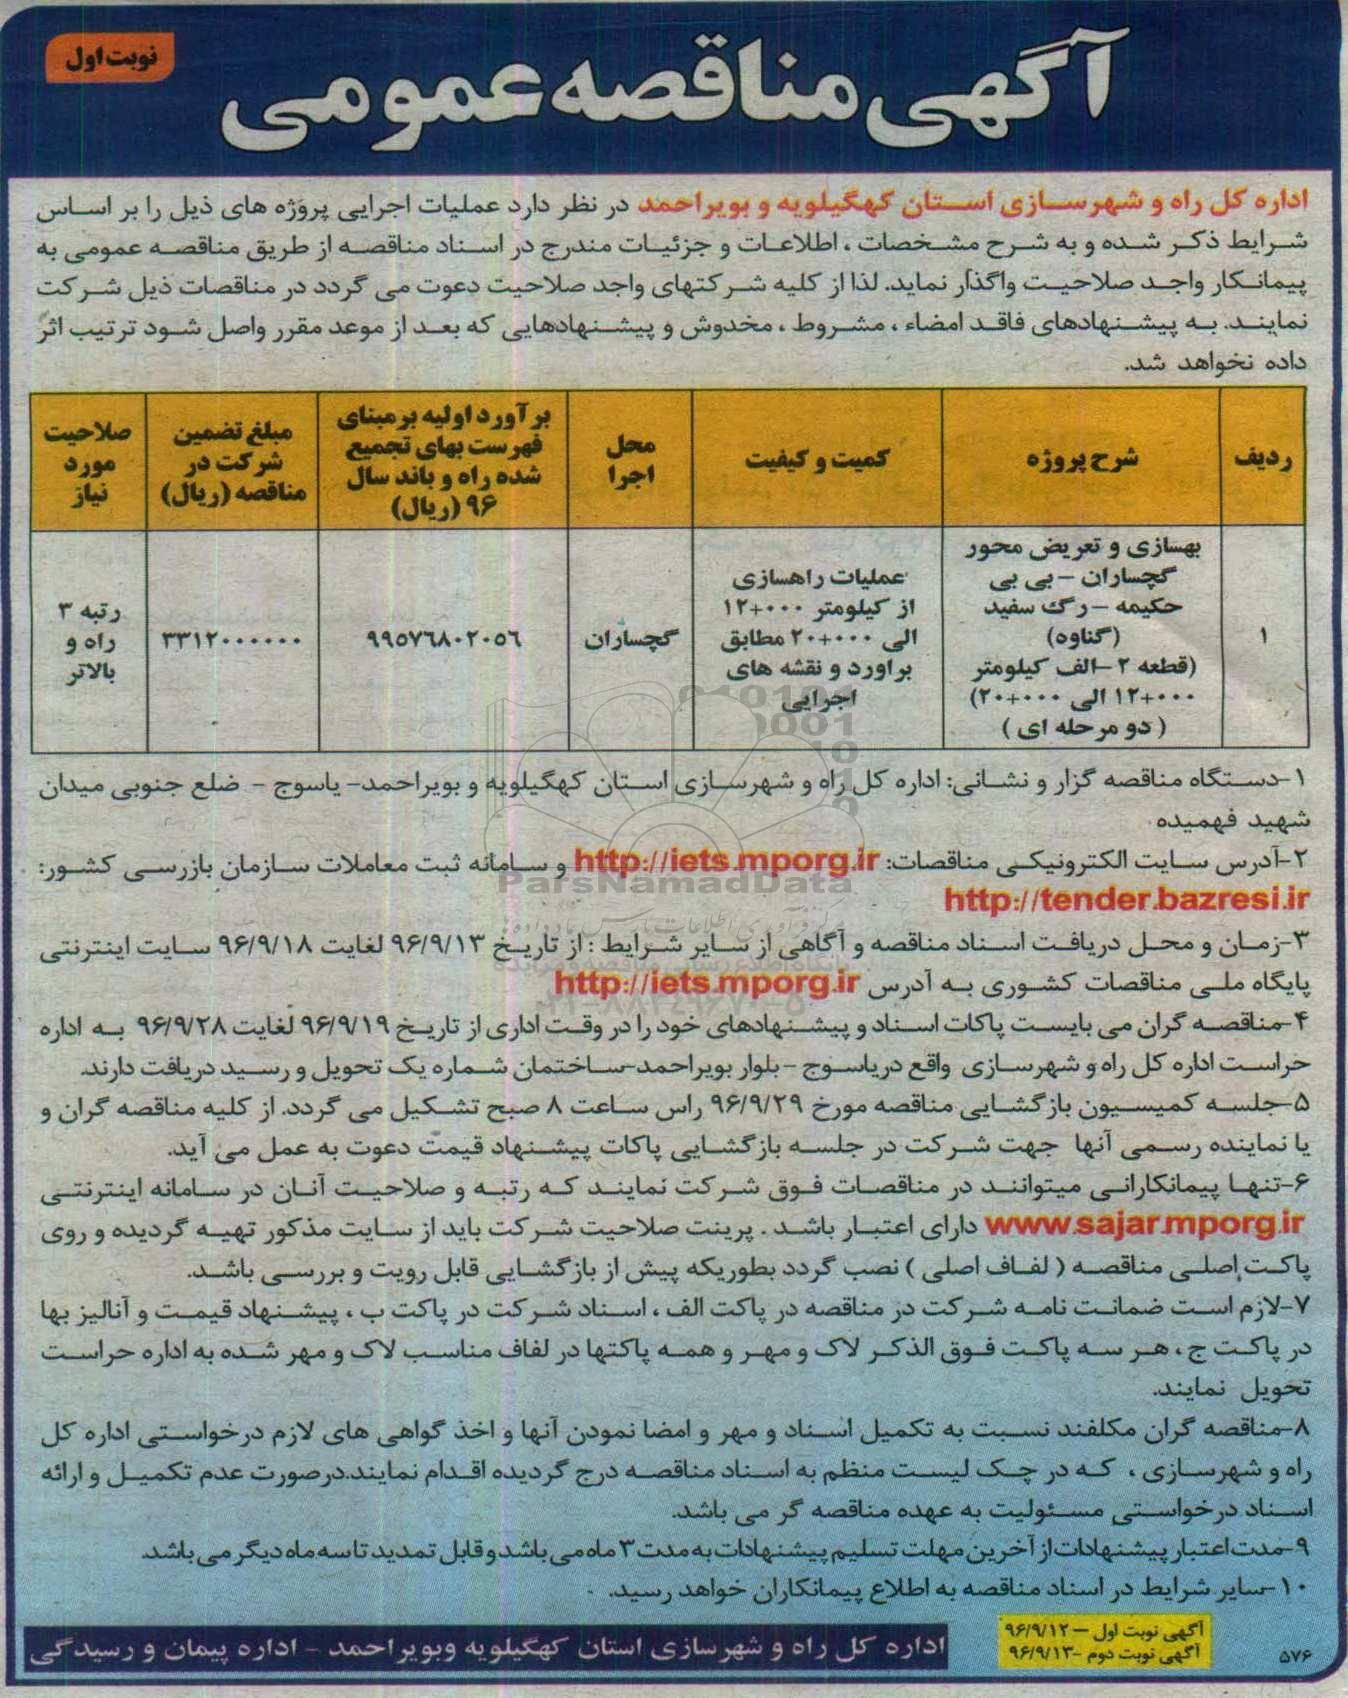 آگهی مناقصه عمومی
نوبت اول
اداره کل راه و شهرسازی استان کهگیلویه و بویراحمد در نظر دارد عملیات اجرایی پروژه های ذیل را بر اساس
شرایط ذکر شده و به شرح مشخصات ، اطلاعات و جزئیات مندرج در اسناد مناقصه از طریق مناقصه عمومی به
پیمانکار واجد صلاحیت واگذار نماید. لذا از کلیه شرکتهای واجد صلاحیت دعوت می گردد در مناقصات ذیل شرکت
نمایند. به پیشنهادهای فاقد امضاء ، مشروط ، مخدوش و پیشنهادهایی که بعد از موعد مقرر واصل شود ترتیب اثر
داده نخواهد شد.
ردیف
شرح پروژه
کمیت و کیفیت
محل
اجرا
برآورد اولیه برمبنای
فهرست بهای تجمیع
شده راه و باند سال
۹۶ (ریال)
مبلغ تضمین
شرکت در
مناقصه (ریال)
صلاحیت
مورد
نیاز
۱
بهسازی و تعریض محور
گچساران – بی بی
حکیمه – رگ سفید
(گناوه)
(قطعه ۲ -الف کیلومتر
۱۲+۰۰۰ الی ۲۰+۰۰۰)
( دو مرحله ای )
عملیات راهسازی
از کیلومتر ۱۲+۰۰۰
الی ۲۰+۰۰۰ مطابق
براورد و نقشه های
اجرایی
گچساران
۹۹۵۷۶۸۰۲۰۵۶
۳۳۱۲۰۰۰۰۰۰
رتبه ۳
راه و
بالاتر
۱-دستگاه مناقصه گزار و نشانی: اداره کل راه و شهرسازی استان کهگیلویه و بویراحمد- یاسوج - ضلع جنوبی میدان
شهید فهمیده
۲-آدرس سایت الکترونیکی مناقصات: http://iets.mporg.ir و سامانه ثبت معاملات سازمان بازرسی کشور:
http://tender.bazresi.ir
۳-زمان و محل دریافت اسناد مناقصه و آگاهی از سایر شرایط : از تاریخ ۹۶/۹/۱۳ لغایت ۹۶/۹/۱۸ سایت اینترنتی
پایگاه ملی مناقصات کشوری به آدرس http://iets.mporg.ir
۴-مناقصه گران می بایست پاکات اسناد و پیشنهادهای خود را در وقت اداری از تاریخ ۹۶/۹/۱۹ لغایت ۹۶/۹/۲۸ به اداره
حراست اداره کل راه و شهرسازی واقع دریاسوج - بلوار بویراحمد-ساختمان شماره یک تحویل و رسید دریافت دارند.
۵-جلسه کمیسیون بازگشایی مناقصه مورخ ۹۶/۹/۲۹ راس ساعت ۸ صبح تشکیل می گردد. از کلیه مناقصه گران و
یا نماینده رسمی آنها جهت شرکت در جلسه بازگشایی پاکات پیشنهاد قیمت دعوت به عمل می آید.
۶-تنها پیمانکارانی میتوانند در مناقصات فوق شرکت نمایند که رتبه و صلاحیت آنان در سامانه اینترنتی
www.sajar.mporg.ir دارای اعتبار باشد . پرینت صلاحیت شرکت باید از سایت مذکور تهیه گردیده و روی
پاکت اصلی مناقصه ( لفاف اصلی ) نصب گردد بطوریکه پیش از بازگشایی قابل رویت و بررسی باشد.
۷-لازم است ضمانت نامه شرکت در مناقصه در پاکت الف ، اسناد شرکت در پاکت ب ، پیشنهاد قیمت و آنالیز بها
در پاکت ج ، هر سه پاکت فوق الذکر لاک و مهر و همه پاکتها در لفاف مناسب لاک و مهر شده به اداره حراست
تحویل نمایند.
۸-مناقصه گران مکلفند نسبت به تکمیل اسناد و مهر و امضا نمودن آنها و اخذ گواهی های لازم درخواستی اداره کل
راه و شهرسازی ، که در چک لیست منظم به اسناد مناقصه درج گردیده اقدام نمایند.درصورت عدم تکمیل و ارائه
اسناد درخواستی مسئولیت به عهده مناقصه گر می باشد.
۹-مدت اعتبار پیشنهادات از آخرین مهلت تسلیم پیشنهادات به مدت ۳ ماه می باشد و قابل تمدید تا سه ماه دیگر می باشد.
۱۰-سایر شرایط در اسناد مناقصه به اطلاع پیمانکاران خواهد رسید.
آگهی نوبت اول – ۹۶/۹/۱۲
آگهی نوبت دوم -۹۶/۹/۱۳
اداره کل راه و شهرسازی استان کهگیلویه وبویراحمد - اداره پیمان و رسیدگی
۵۷۶
ParsNamadData